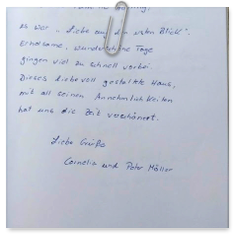 es war „Liebe auf den ersten Blick".
Erholsame, wunderschöne Tage
gingen viel zu schnell vorbei.
Dieses liebevoll gestaltete Haus,
mit all seinen Annehmlichkeiten
hat uns die Zeit verschönert.
Liebe Grüße
Cornelia und Peter Möller